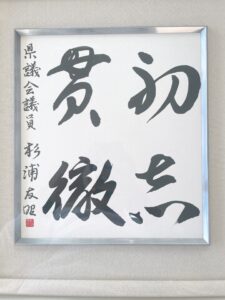 初志
貫徹
県議会議員 杉浦友昭